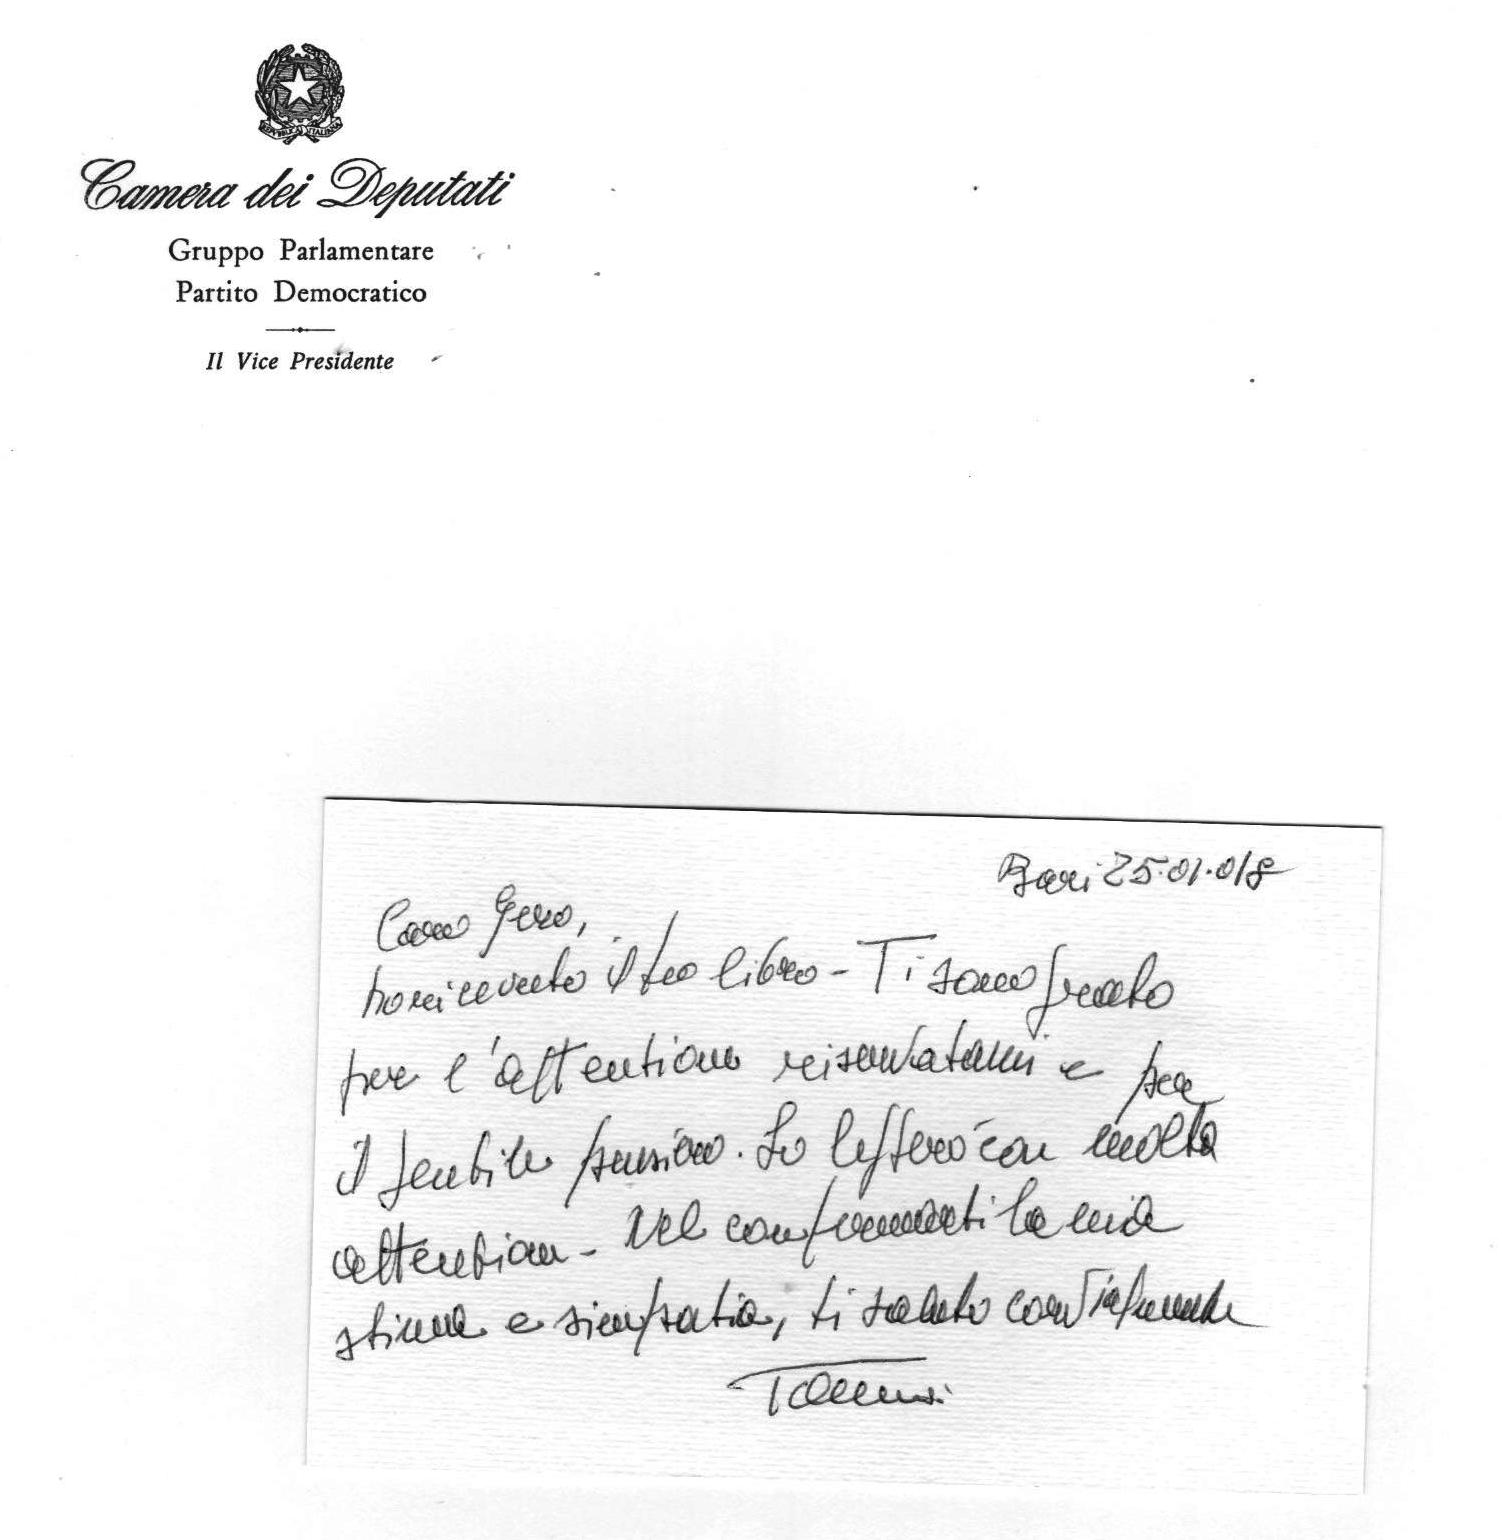 REPUBBLICA ITALIANA
Camera dei Deputati
Gruppo Parlamentare
Partito Democratico
Il Vice Presidente
Bari 25.01.018
Caro Gero,
ho ricevuto il tuo libro - Ti sono grato
per l'attenzione riservatami e per
il gentile pensiero. Lo leggerò con molta
attenzione - Nel confermarti la mia
stima e simpatia, ti saluto cordialmente